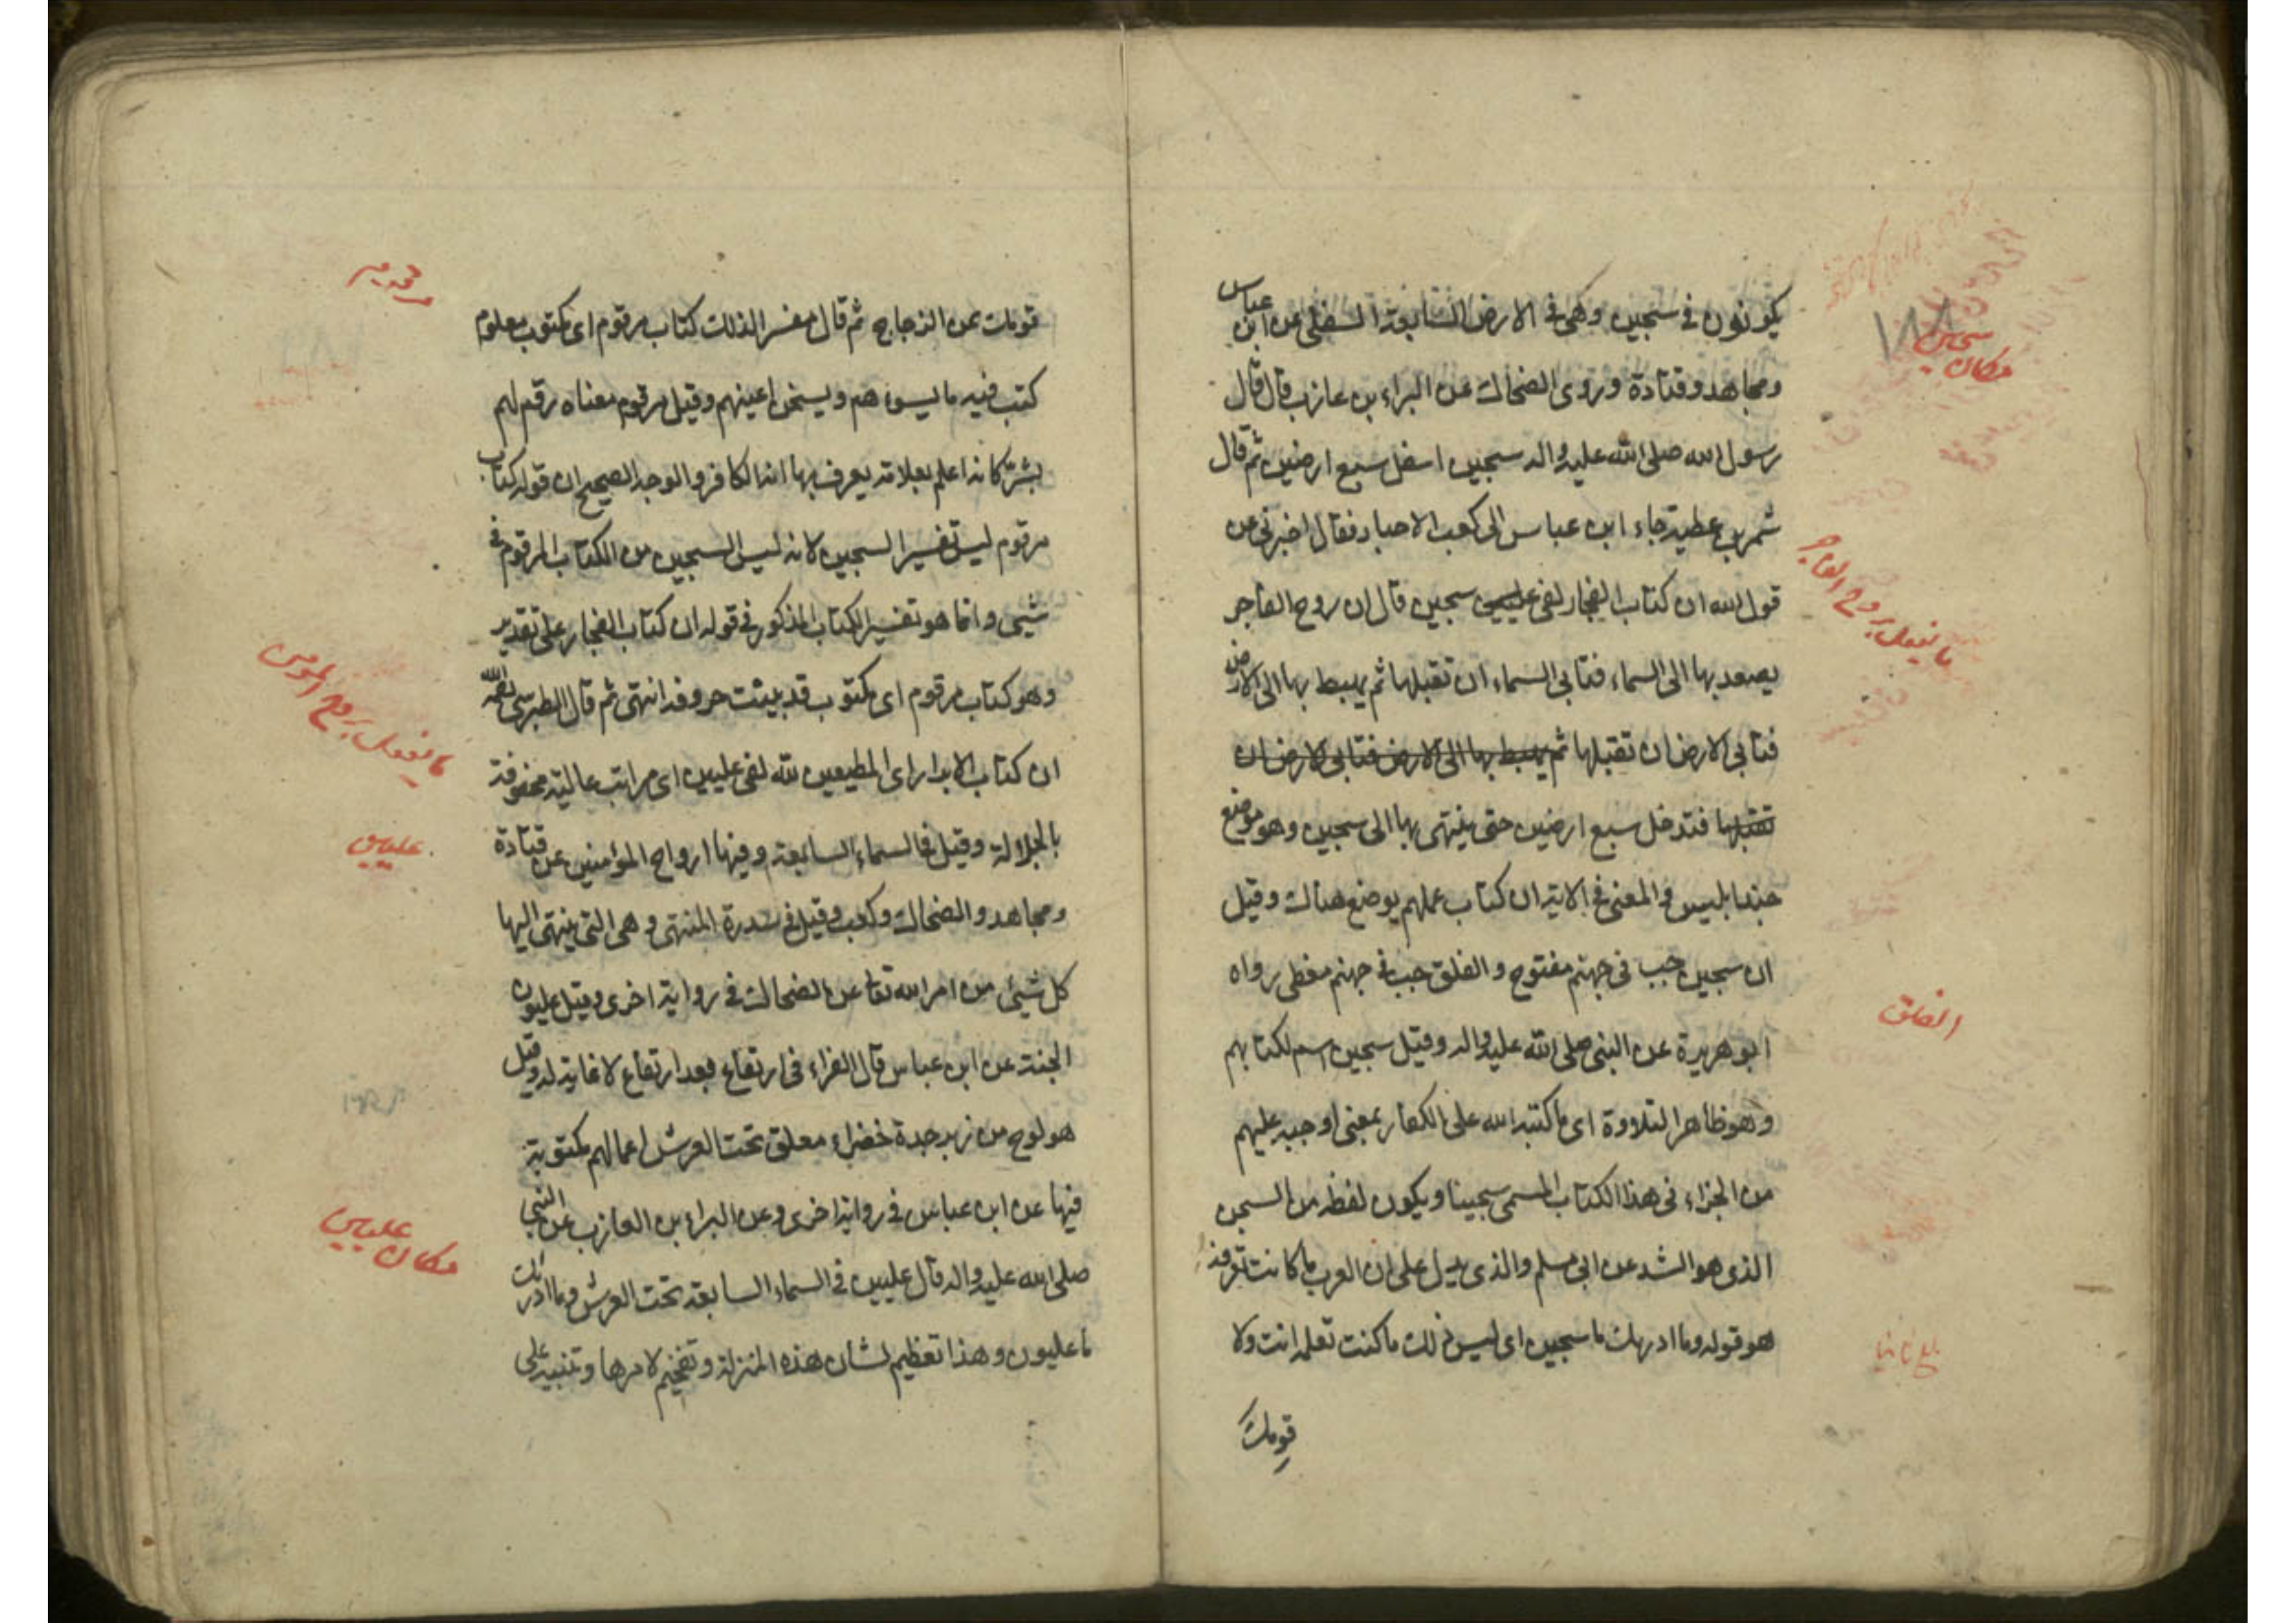 يكونون في سجين وهي في الارض السابعة السفلى عن ابن عباس
ومجاهد وقتادة وروى الضحاك عن البراء بن عازب قال قال
رسول الله صلى الله عليه واله سجين اسفل سبع ارضين ثم قال
شمر بن عطية جاء ابن عباس الى كعب الاحبار فقال اخبرني عن
قول الله ان كتاب الفجار لفي سجين قال ان روح الفاجر
يصعد بها الى السماء فتابى السماء ان تقبلها ثم يهبط بها الى الارض
فتابى الارض ان تقبلها ثم يهبط بها الى الارض فتابى الارض ان
تقبلها فتدخل سبع ارضين حتى ينتهى بها الى سجين وهو موضع
جند ابليس والمعنى في الاية ان كتاب عملهم يوضع هناك وقيل
ان سجين جب في جهنم مفتوح والفلق جب في جهنم مغطى رواه
ابو هريرة عن النبي صلى الله عليه واله وقيل سجين اسم لكتابهم
وهو ظاهر التلاوة اى ما كتبه الله على الكفار بمعنى اوجبه عليهم
من الجزاء في هذا الكتاب المسمى سجينا ويكون لفظه من السجن
الذى هو الشد عن ابي مسلم والذى يدل على ان العرب ما كانت تعرفه
هو قوله وما ادريك ما سجين اى ليس ذلك ما كنت تعلمه انت ولا
قومك
سجين
مكان
ما يفعل بروح الفاجر
الفلق
قومك عن الزجاج ثم قال مفسرا لذلك كتاب مرقوم اى مكتوب معلوم
كتب فيه ما يسوءهم ويسخن اعينهم وقيل مرقوم معناه رقم لهم
بشر كانه اعلم بعلامة يعرف بها انه الكافر والوجه الصحيح ان قوله كتاب
مرقوم ليس تفسير السجين لانه ليس السجين من الكتاب المرقوم في
شيئ وانما هو تفسير الكتاب المذكور في قوله ان كتاب الفجار على تقدير
وهو كتاب مرقوم اى مكتوب قد بينت حروفه انتهى ثم قال الطبرسي
ان كتاب الابرار اى المطيعين لله لفي عليين اى مراتب عالية محفوفة
بالجلالة وقيل في السماء السابعة وفيها ارواح المؤمنين عن قتادة
ومجاهد والضحاك وكعب وقيل في سدرة المنتهى وهى التي ينتهى اليها
كل شيئ من امر الله تعا عن الضحاك في رواية اخرى وقيل عليون
الجنة عن ابن عباس قال الفراء في ارتفاع بعد ارتفاع لا غاية له وقيل
هو لوح من زبرجدة خضراء معلق تحت العرش اعمالهم مكتوبة
فيها عن ابن عباس في رواية اخرى وعن البراء بن العازب عن النبي
صلى الله عليه واله قال عليين في السماء السابعة تحت العرش وما ادراك
ما عليون وهذا تعظيم لشان هذه المنزلة وتفخيم لامرها وتنبيه على
مرقوم
ما يفعل بروح المومن
عليين
مكان عليين